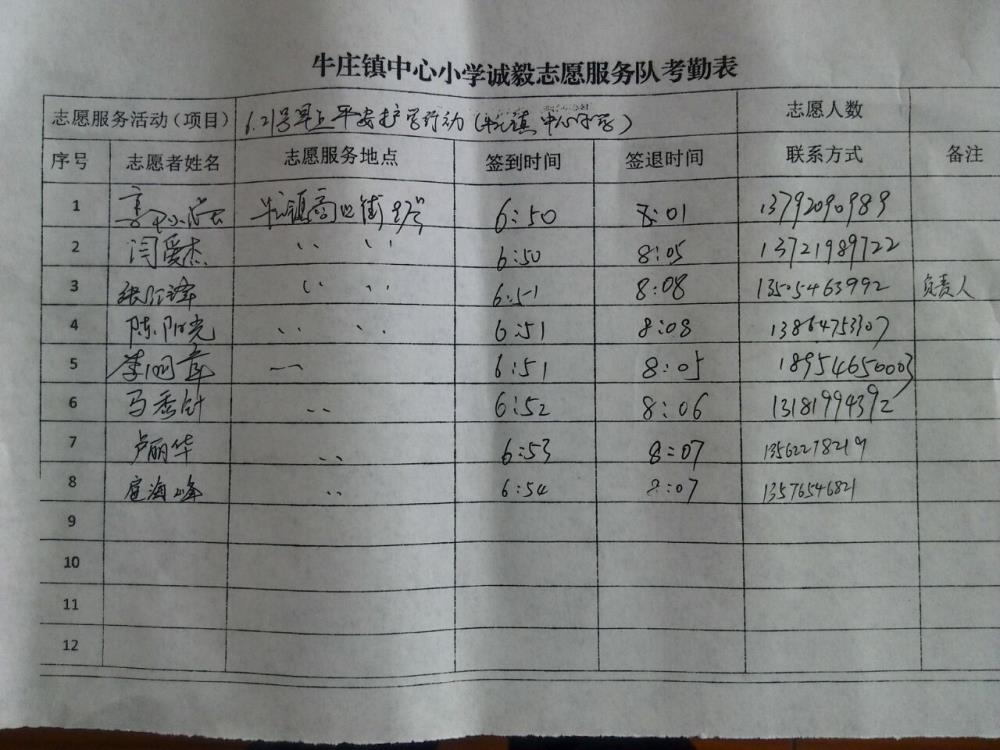 牛庄镇中心小学诚毅志愿服务队考勤表
志愿服务活动（项目） 6.21号早上平安护学行动（牛庄镇中心小学） 志愿人数
序号 志愿者姓名 志愿服务地点 签到时间 签退时间 联系方式 备注
1 牛庄镇商业街 6:50 8:01 13792090989
2 闫爱杰 〃 〃 6:50 8:05 13721989722
3 〃 〃 6:51 8:08 13505463992 负责人
4 陈阳光 〃 〃 6:51 8:08 13864753307
5 6:51 8:05 18954650003
6 马秀 〃 6:52 8:06 13181994392
7 卢丽华 〃 6:53 8:07 13562278219
8 海峰 〃 6:54 8:07 13576546821
9
10
11
12